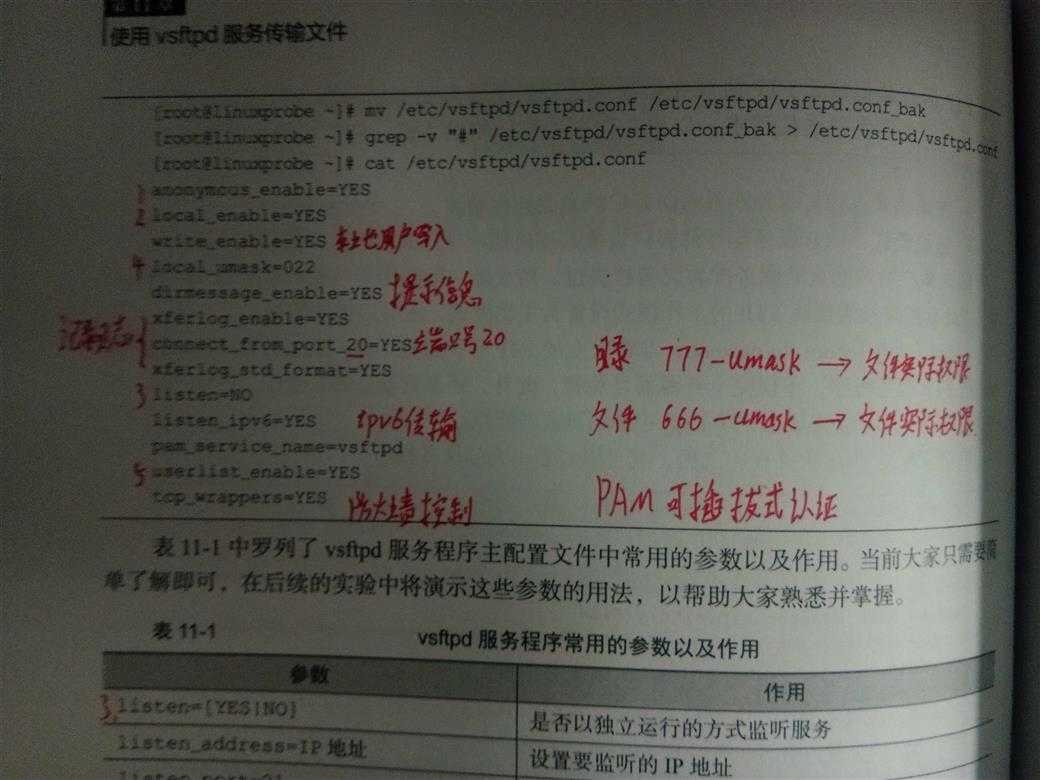 第11章
使用 vsftpd 服务传输文件
[root@linuxprobe ~]# mv /etc/vsftpd/vsftpd.conf /etc/vsftpd/vsftpd.conf_bak
[root@linuxprobe ~]# grep -v "#" /etc/vsftpd/vsftpd.conf_bak > /etc/vsftpd/vsftpd.conf
[root@linuxprobe ~]# cat /etc/vsftpd/vsftpd.conf
1 anonymous_enable=YES
2 local_enable=YES
write_enable=YES 本地用户写入
4 local_umask=022
dirmessage_enable=YES 提示信息
xferlog_enable=YES
记录日志 connect_from_port_20=YES 主端口号20
目录 777-umask → 文件实际权限
xferlog_std_format=YES
3 listen=NO
listen_ipv6=YES ipv6传输 文件 666-umask → 文件实际权限
pam_service_name=vsftpd
5 userlist_enable=YES
tcp_wrappers=YES 防火墙控制 PAM 可插拔式认证
表 11-1 中罗列了 vsftpd 服务程序主配置文件中常用的参数以及作用。当前大家只需要简
单了解即可，在后续的实验中将演示这些参数的用法，以帮助大家熟悉并掌握。
表 11-1 vsftpd 服务程序常用的参数以及作用
参数 作用
3. listen=[YES|NO] 是否以独立运行的方式监听服务
listen_address=IP 地址 设置要监听的 IP 地址
listen_port=21